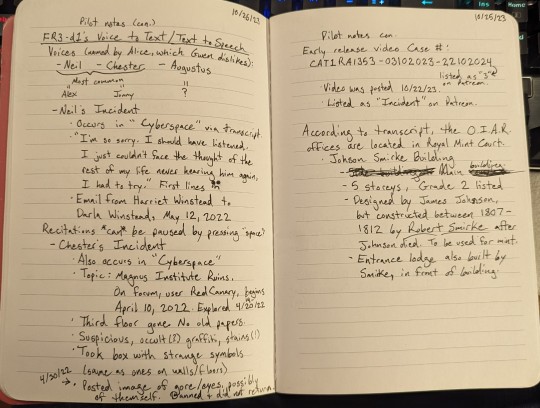 10/26/23
Pilot notes (con.)
FR3-d1's Voice to Text / Text to Speech
Voices (named by Alice, which Gwen dislikes):
- Neil - Chester - Augustus
Most common
Alex Jonny ?
- Neil's Incident
· Occurs in "Cyberspace" via transcript.
· "I'm so sorry. I should have listened.
I just couldn't face the thought of the
rest of my life never hearing him again,
I had to try." First lines
· Email from Harriet Winstead to
Darla Winstead, May 12, 2022
Recitations *can* be paused by pressing "space"
- Chester's Incident
· Also occurs in "Cyberspace"
· Topic: Magnus Institute Ruins.
On forum, user RedCanary, begins
April 10, 2022. Explored 4/20/22
· Third floor gone. No old papers.
· Suspicious, occult(?) graffiti, stains(!)
· Took box with strange symbols
(same as ones on walls/floors)
4/30/22 → · Posted image of gore/eyes, possibly
of themself. Banned + did not return.
10/25/23
Pilot notes con.
Early release video Case #:
CAT1RA1353-03102023-22102024
· Video was posted 10/22/23. listed as "3rd" on Patreon
· Listed as "Incident" on Patreon.
According to transcript, the O.I.A.R.
offices are located in Royal Mint Court.
· Johson Smirke Building
- Main building
- 5 storeys, Grade 2 listed
- Designed by James Johnson,
but constructed between 1807-
1812 by Robert Smirke after
Johnson died. To be used for mint.
- Entrance lodge also built by
Smirke, in front of building.